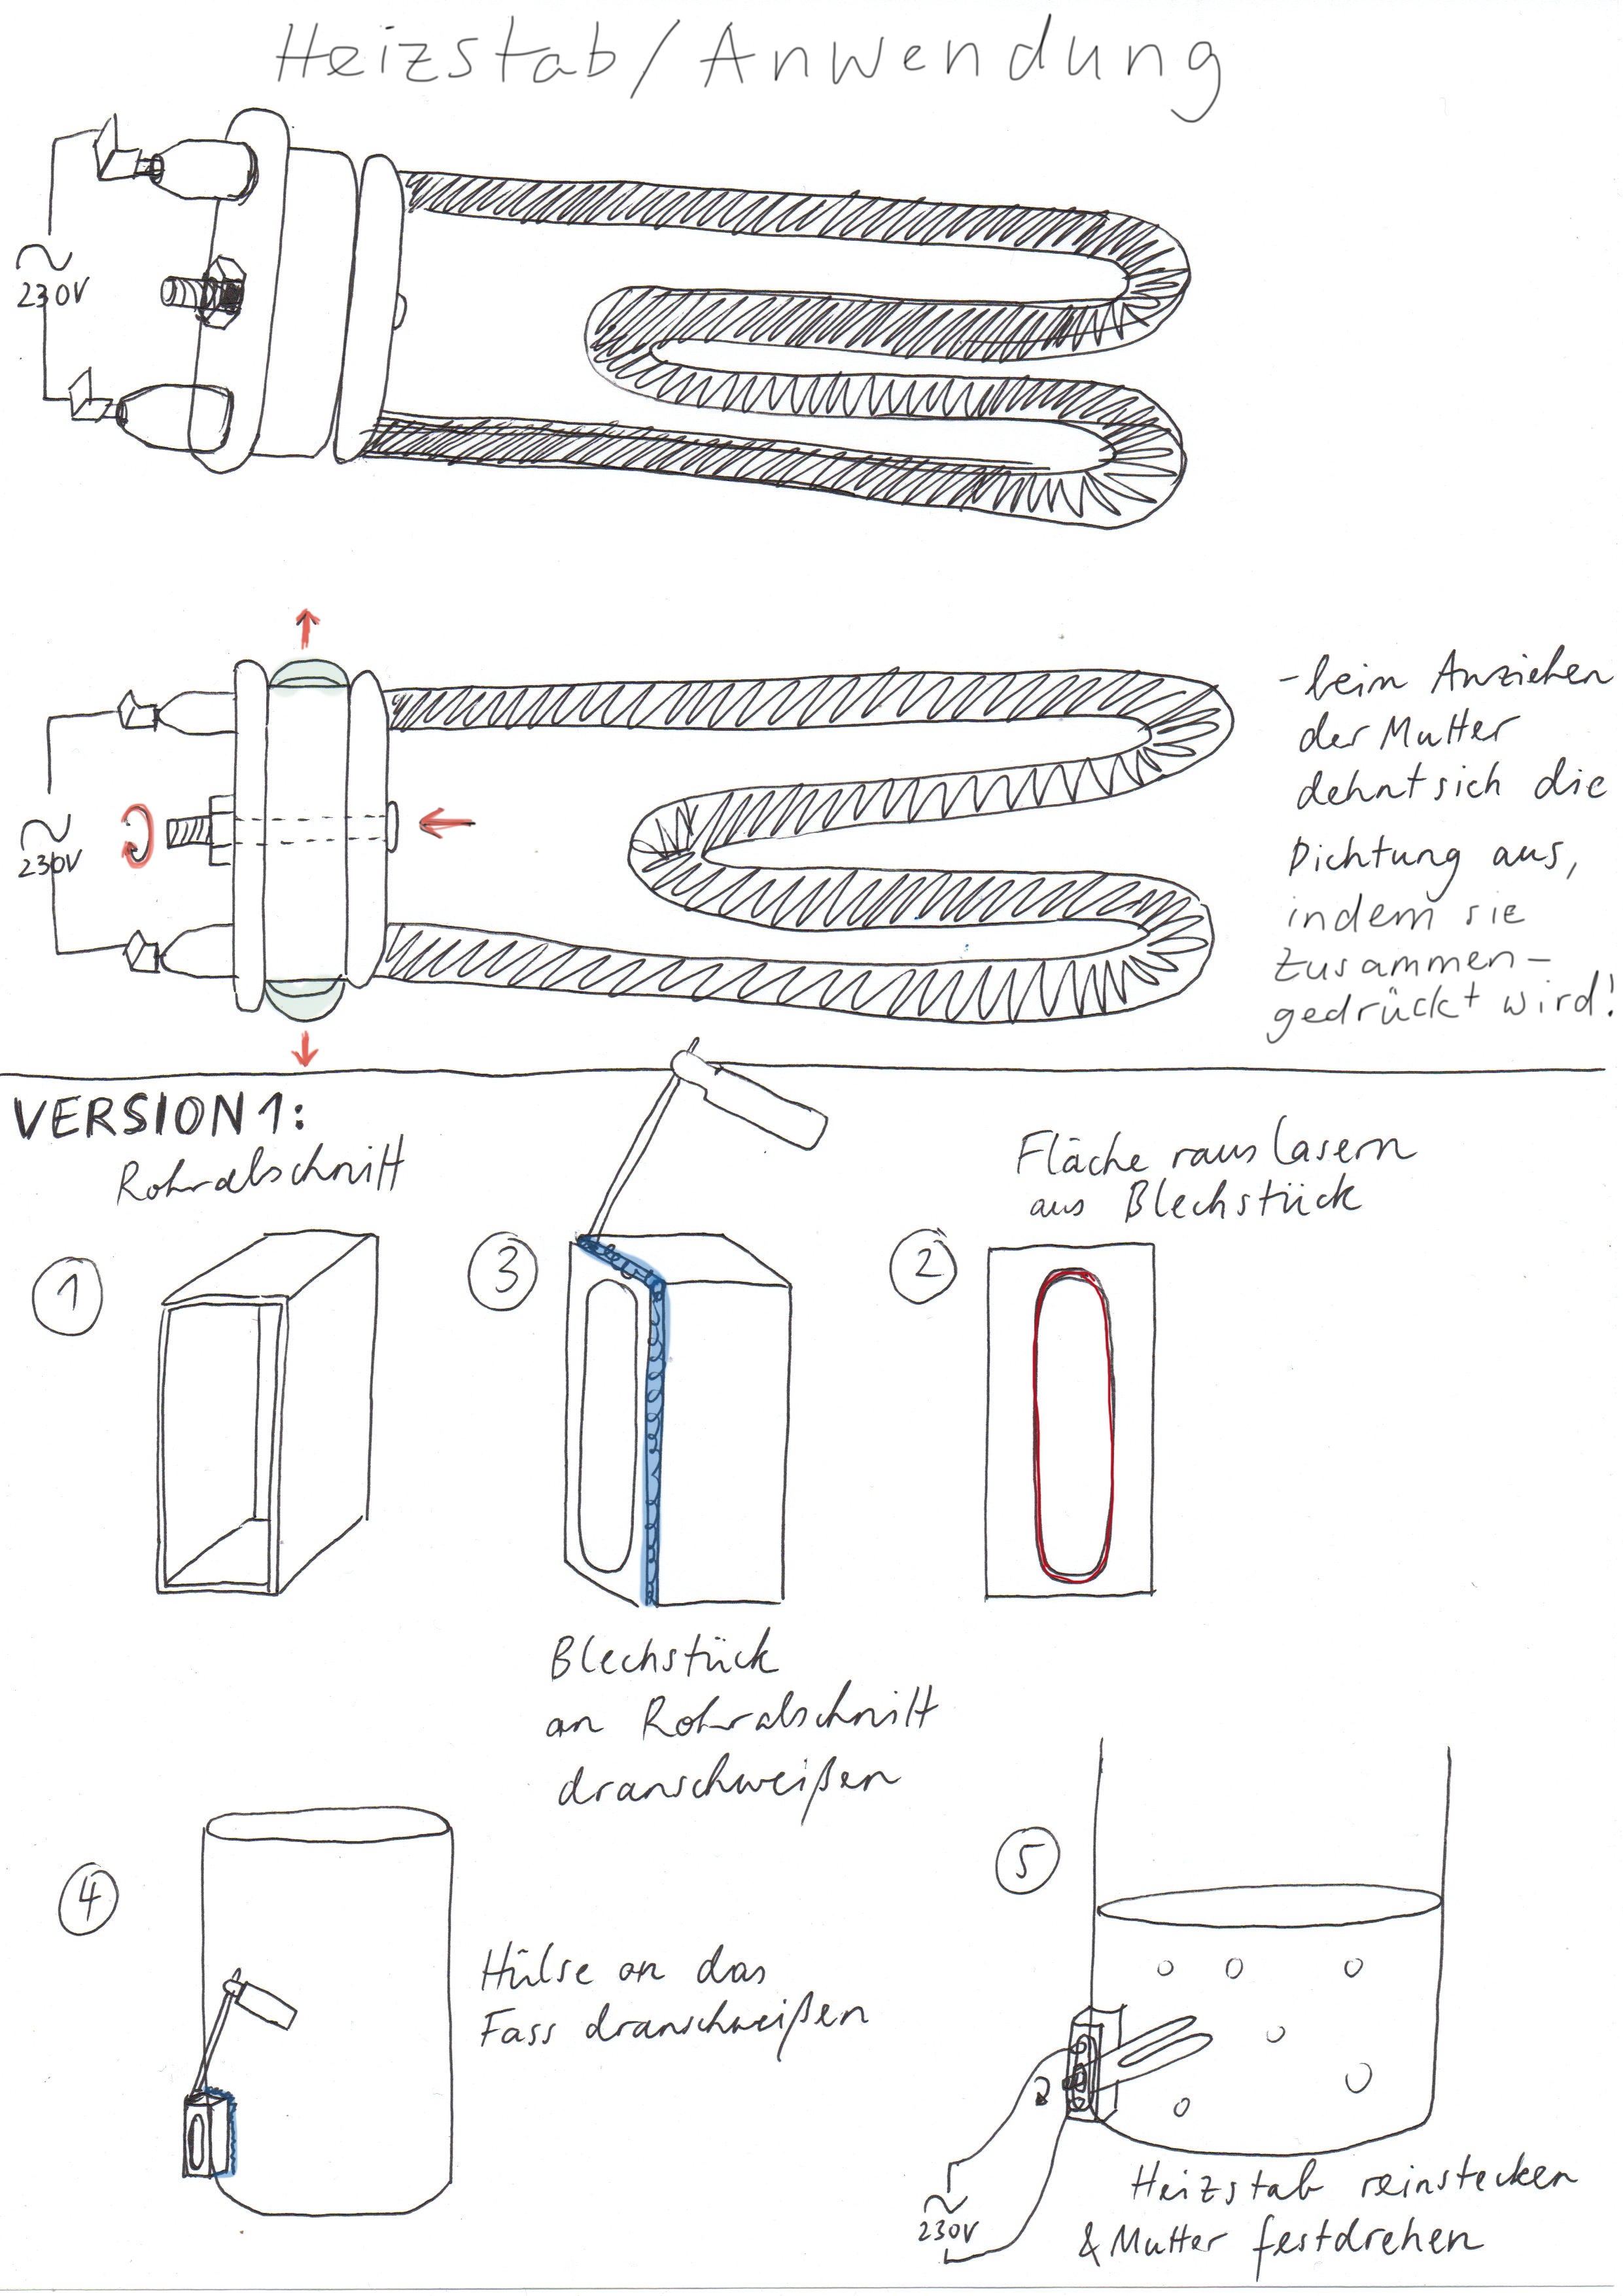 Heizstab/Anwendung
~
230V
~
230V
- beim Anziehen
der Mutter
dehnt sich die
Dichtung aus,
indem sie
zusammen-
gedrückt wird!
VERSION 1:
Rohrabschnitt
1
3
Fläche rauslasern
aus Blechstück
2
Blechstück
an Rohrabschnitt
dranschweißen
4
Hülse an das
Fass dranschweißen
5
~
230V
Heizstab reinstecken
& Mutter festdrehen